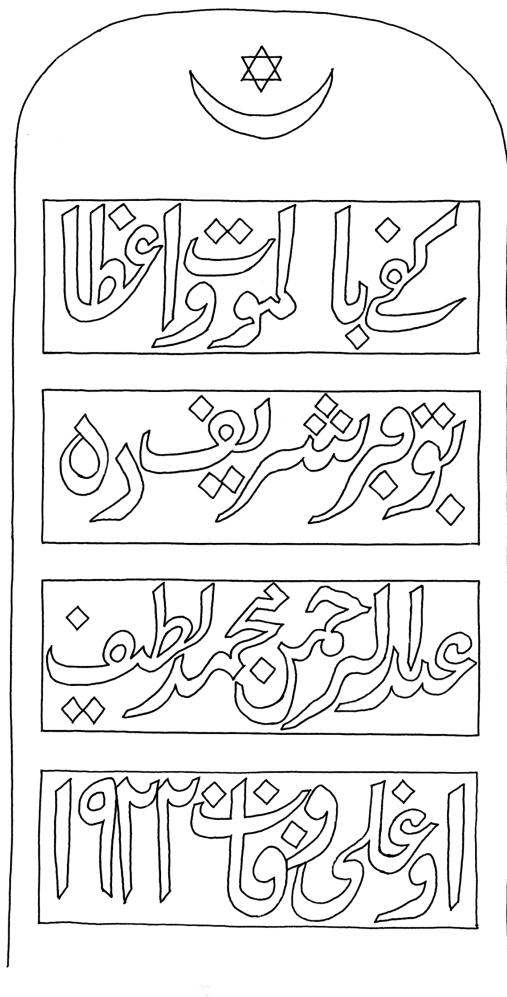 كفے بالموت واغطا
بو قبر شريف ده
عبد الرحمن محمد لطيف
اوغلی وفات ۱۹۲۲